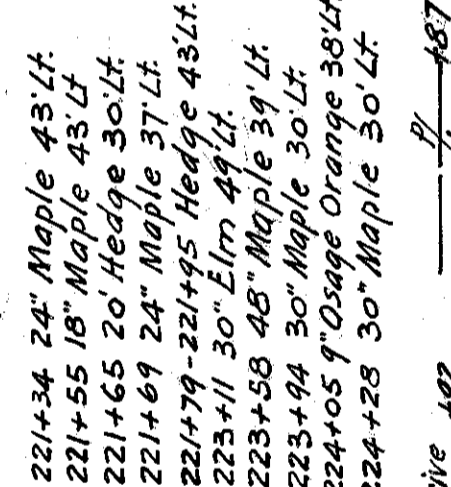 221+34 24" Maple 43' Lt.
221+55 18" Maple 43' Lt
221+65 20' Hedge 30' Lt.
221+69 24" Maple 37' Lt.
221+79-221+95 Hedge 43' Lt.
223+11 30" Elm 49' Lt.
223+58 48" Maple 39' Lt.
223+94 30" Maple 30' Lt.
224+05 9" Osage Orange 38' Lt
224+28 30" Maple 30' Lt.
+87